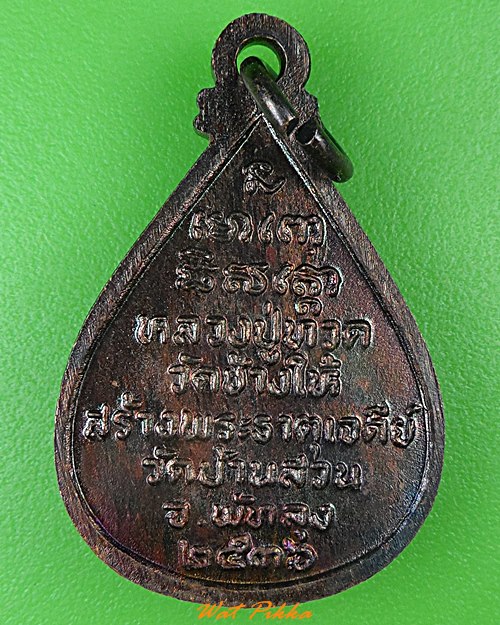 หลวงปู่ทวด
วัดช้างให้
สร้างพระธาตุเจดีย์
วัดบ้านสวน
จ.พัทลุง
๒๕๓๖
Wat Pikka